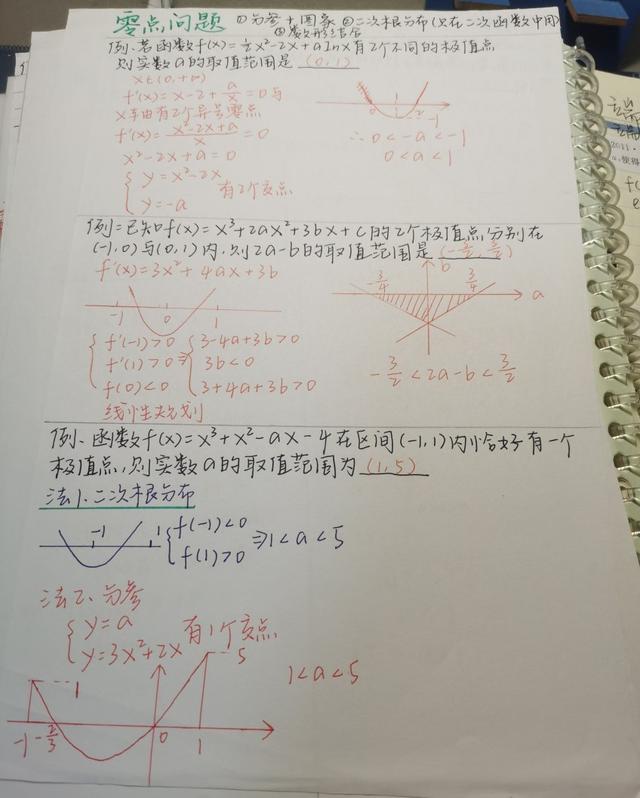 零点问题 ①分参+图象 ②二次根分布(只在二次函数中用)
③数形结合
例、若函数f(x)=½x²-2x+alnx有2个不同的极值点
则实数a的取值范围是 (0,1)
x∈(0,+∞)
f'(x)=x-2+a/x=0与
x轴有2个异号零点
f'(x)=(x²-2x+a)/x=0
x²-2x+a=0
{y=x²-2x
y=-a
有2个交点
0 1 2 -1
∴0<-a<-1
0<a<1
例=已知f(x)=x³+2ax²+3bx+c的2个极值点分别在
(-1,0)与(0,1)内,则2a-b的取值范围是 (-3/2,3/2)
f'(x)=3x²+4ax+3b
-1 0 1
{f'(-1)>0
f'(1)>0
f(0)<0
⇒{3-4a+3b>0
3b<0
3+4a+3b>0
线性规划
-3/4 b 3/4 a
-3/2<2a-b<3/2
例、函数f(x)=x³+x²-ax-4在区间(-1,1)内恰好有一个
极值点,则实数a的取值范围为 (1,5)
法1.二次根分布
-1 1
{f(-1)<0
f(1)>0
⇒1<a<5
法2、分参
{y=a
y=3x²+2x
有1个交点
1 5
-1 -2/3 0 1
1<a<5
2011·